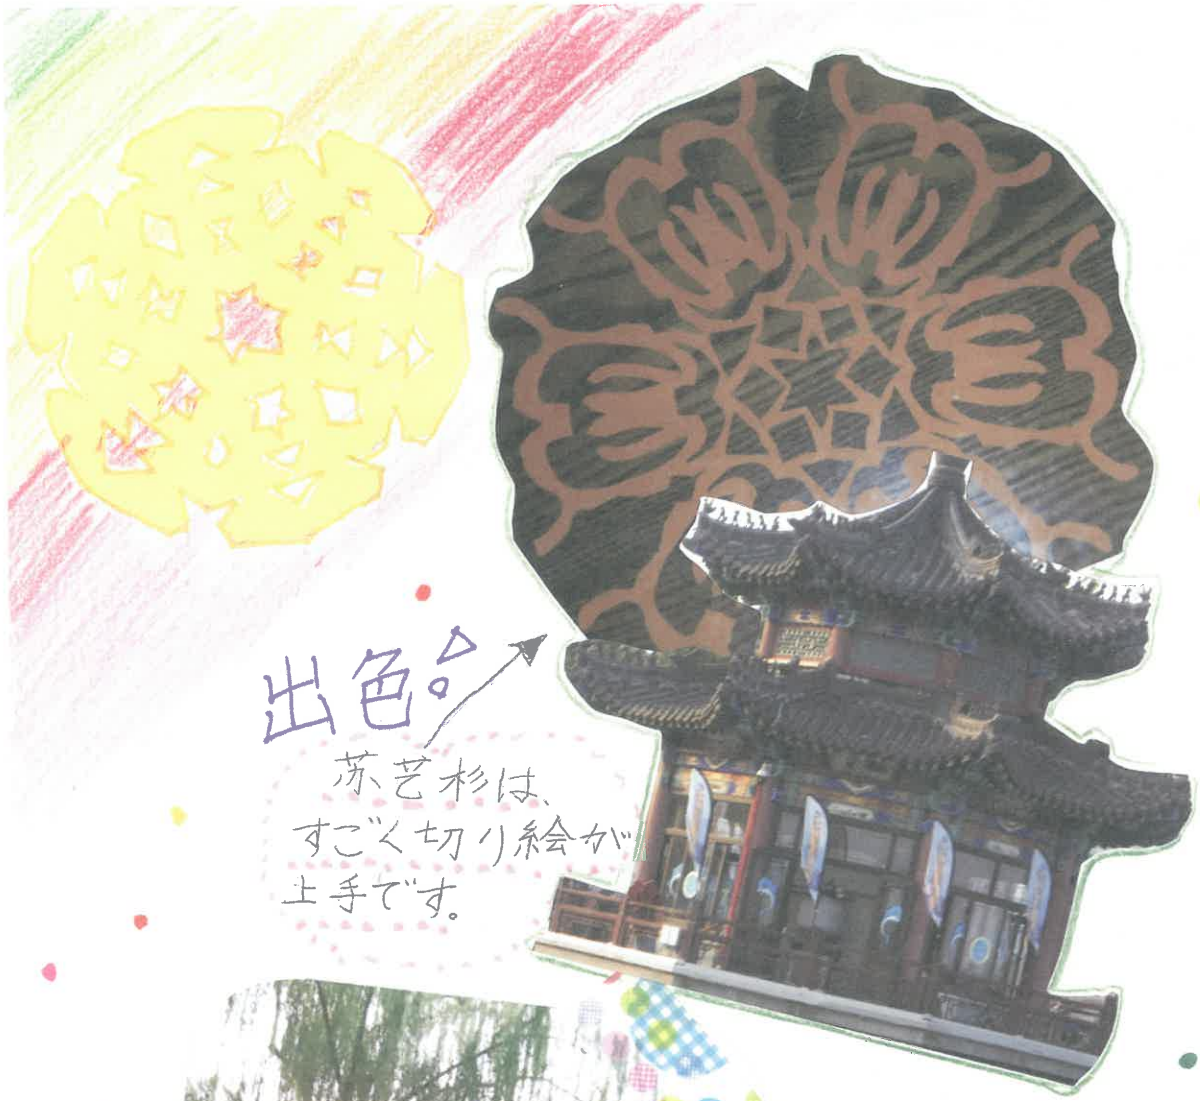 出色!
苏艺杉は、
すごく切り絵が
上手です。